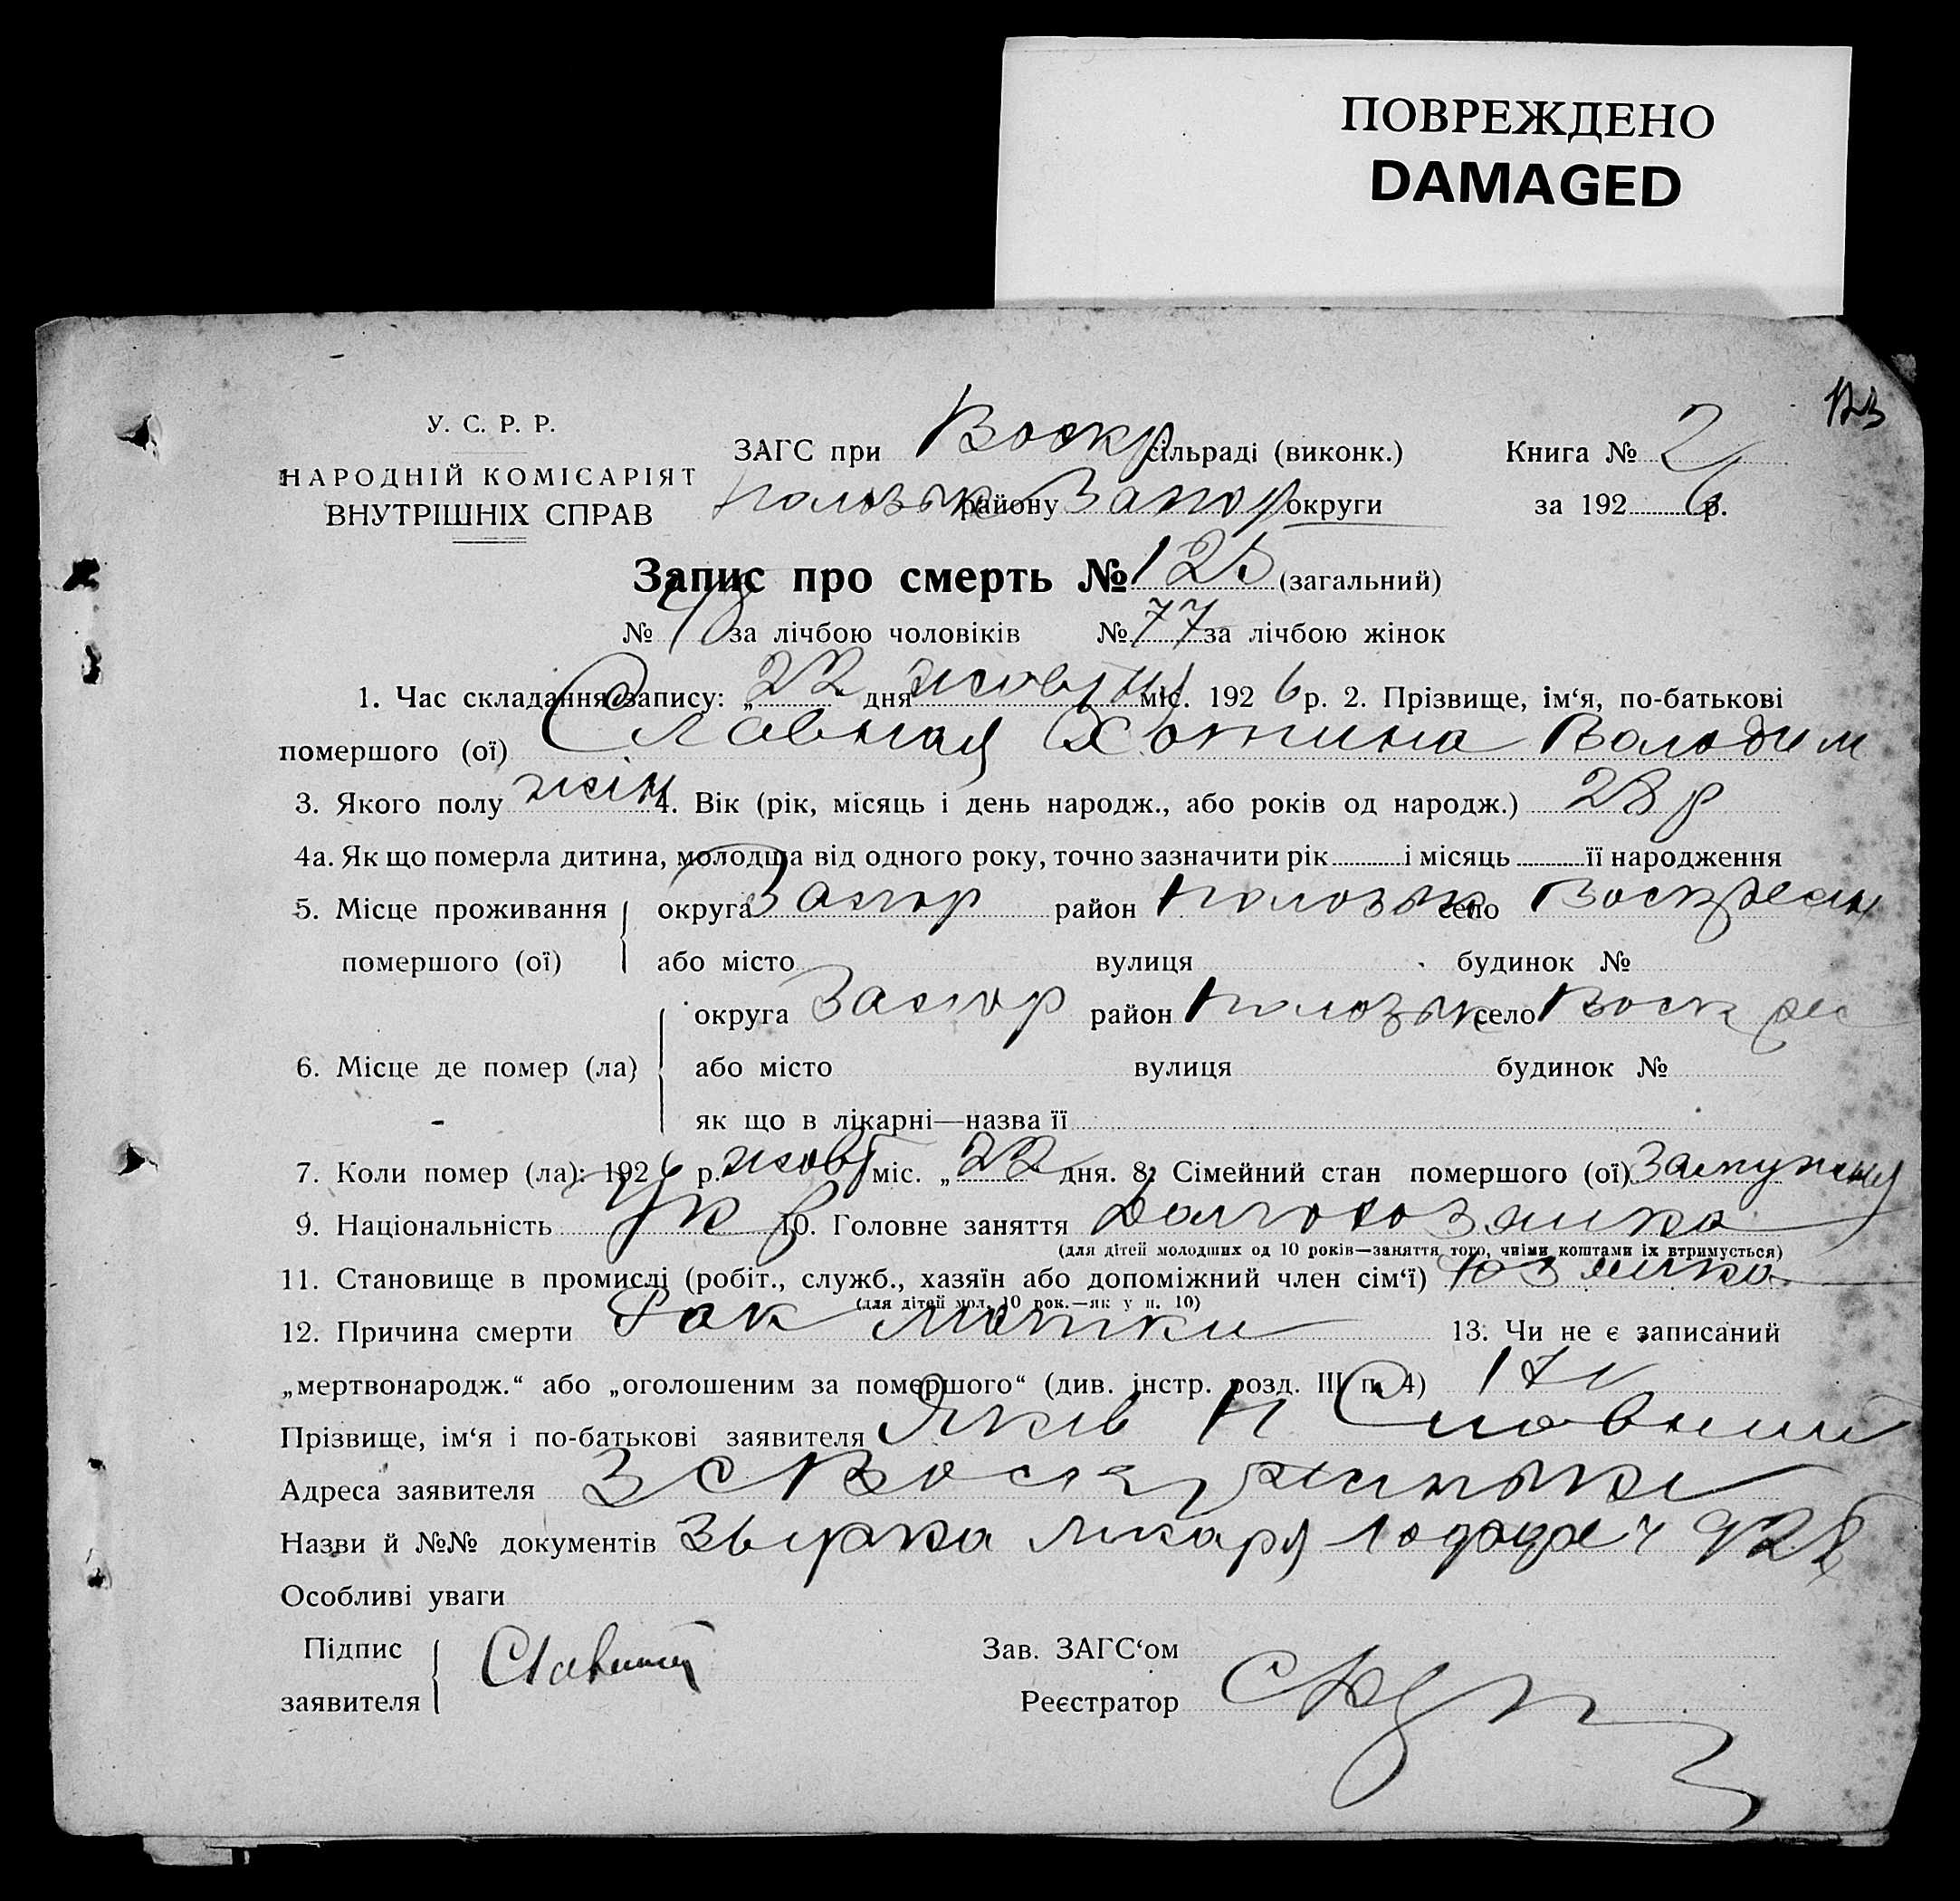 ПОВРЕЖДЕНО
DAMAGED
У. С. Р. Р.
НАРОДНІЙ КОМІСАРІЯТ
ВНУТРІШНІХ СПРАВ
ЗАГС при Воскр сільраді (виконк.)
Пологськ району Запор округи
Книга № 2
за 1926 р.
Запис про смерть № 125 (загальний)
№ 48 за лічбою чоловіків № 77 за лічбою жінок
1. Час складання запису: „22 дня жовтня міс. 1926 р. 2. Прізвище, ім‘я, по-батькові
помершого (ої) Славная Хотина Володим
3. Якого полу жін 4. Вік (рік, місяць і день народж., або років од народж.) 28 р
4а. Як що померла дитина, молодша від одного року, точно зазначити рік і місяць її народження
5. Місце проживання помершого (ої) округа Запор район Пологськ село Воскресен
або місто вулиця будинок №
округа Запор район Пологськ село Воскрес
6. Місце де помер (ла) або місто вулиця будинок №
як що в лікарні—назва її
7. Коли помер (ла): 1926 р. жовт міс. „22 дня. 8. Сімейний стан помершого (ої) Замужня
9. Національність Укр 10. Головне заняття
(для дітей молодших од 10 років—заняття того, чиїми коштами їх втримується)
11. Становище в промислі (робіт., служб., хазяїн або допоміжний член сім‘ї)
(для дітей мол. 10 рок.—як у п. 10)
12. Причина смерти Рак матки 13. Чи не є записаний
„мертвонародж.“ або „оголошеним за помершого“ (див. інстр. розд. III п. 4)
Прізвище, ім‘я і по-батькові заявителя Яків Н Славний
Адреса заявителя З с Воскресенки
Назви й №№ документів лікаря
Особливі уваги
Підпис заявителя Славний
Зав. ЗАГС‘ом
Реєстратор